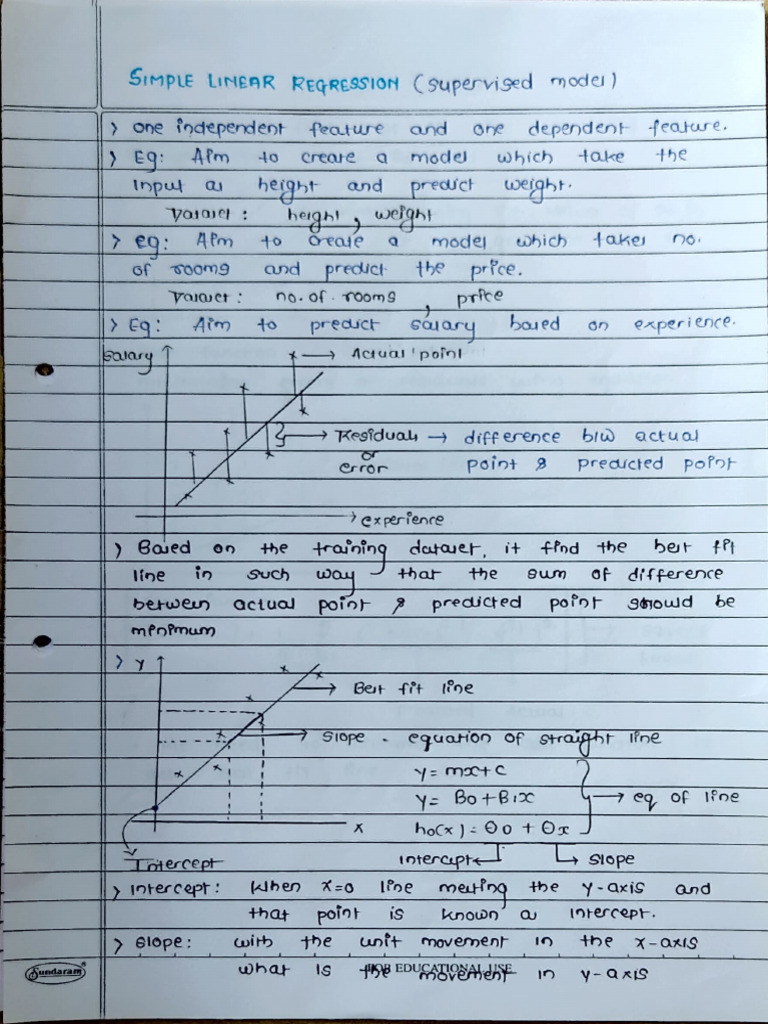 SIMPLE LINEAR REGRESSION (supervised model)
> one independent feature and one dependent feature.
> Eg: Aim to create a model which take the
input as height and predict weight.
Dataset : height, weight
> eg: Aim to create a model which takes no.
of rooms and predict the price.
Dataset : no. of. rooms , price
> Eg: Aim to predict salary based on experience.
Salary
→ Actual point
→ Residuals → difference b/w actual
or
error point & predicted point
→ experience
> Based on the training dataset, it find the best fit
line in such way that the sum of difference
between actual point & predicted point should be
minimum
> y
→ Best fit line
→ slope - equation of straight line
y = mx+c
y = B0+B1x → eq of line
x h0(x) = θ0 + θx
Intercept intercept ← → slope
> intercept : When x=0 line meeting the y-axis and
that point is known as intercept.
> slope : with the unit movement in the x-axis
what is the movement in y-axis
Sundaram FOR EDUCATIONAL USE